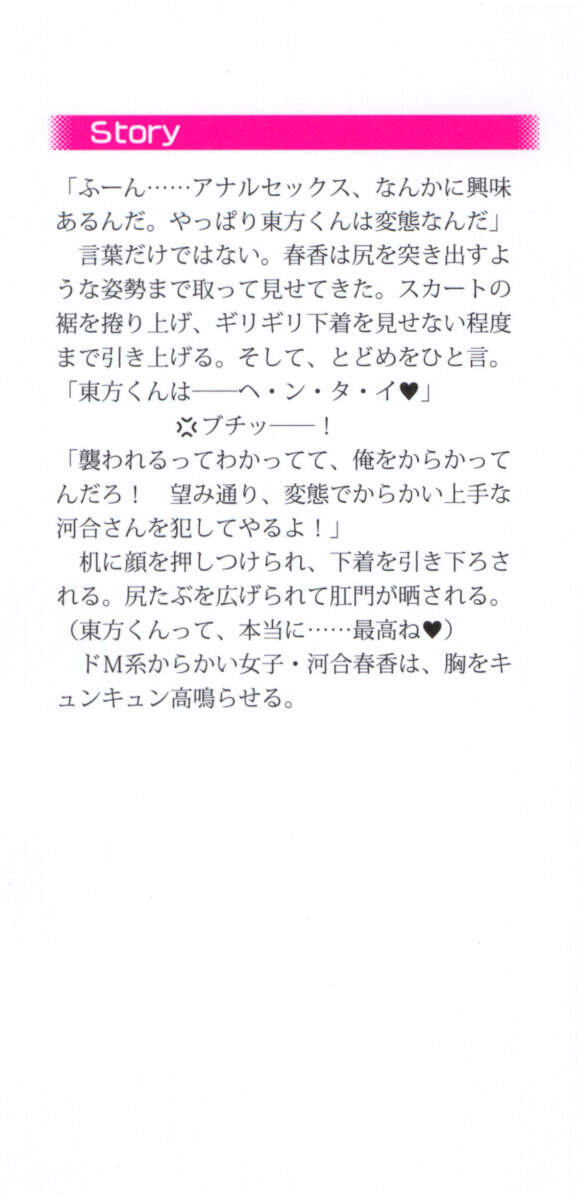 Story
「ふーん……アナルセックス、なんかに興味
あるんだ。やっぱり東方くんは変態なんだ」
　言葉だけではない。春香は尻を突き出すよ
うな姿勢まで取って見せてきた。スカートの
裾を捲り上げ、ギリギリ下着を見せない程度
まで引き上げる。そして、とどめをひと言。
「東方くんは――ヘ・ン・タ・イ♥」
💢ブチッ――！
「襲われるってわかってて、俺をからかって
んだろ！　望み通り、変態でからかい上手な
河合さんを犯してやるよ！」
　机に顔を押しつけられ、下着を引き下ろさ
れる。尻たぶを広げられて肛門が晒される。
（東方くんって、本当に……最高ね♥）
　ドM系からかい女子・河合春香は、胸をキ
ュンキュン高鳴らせる。